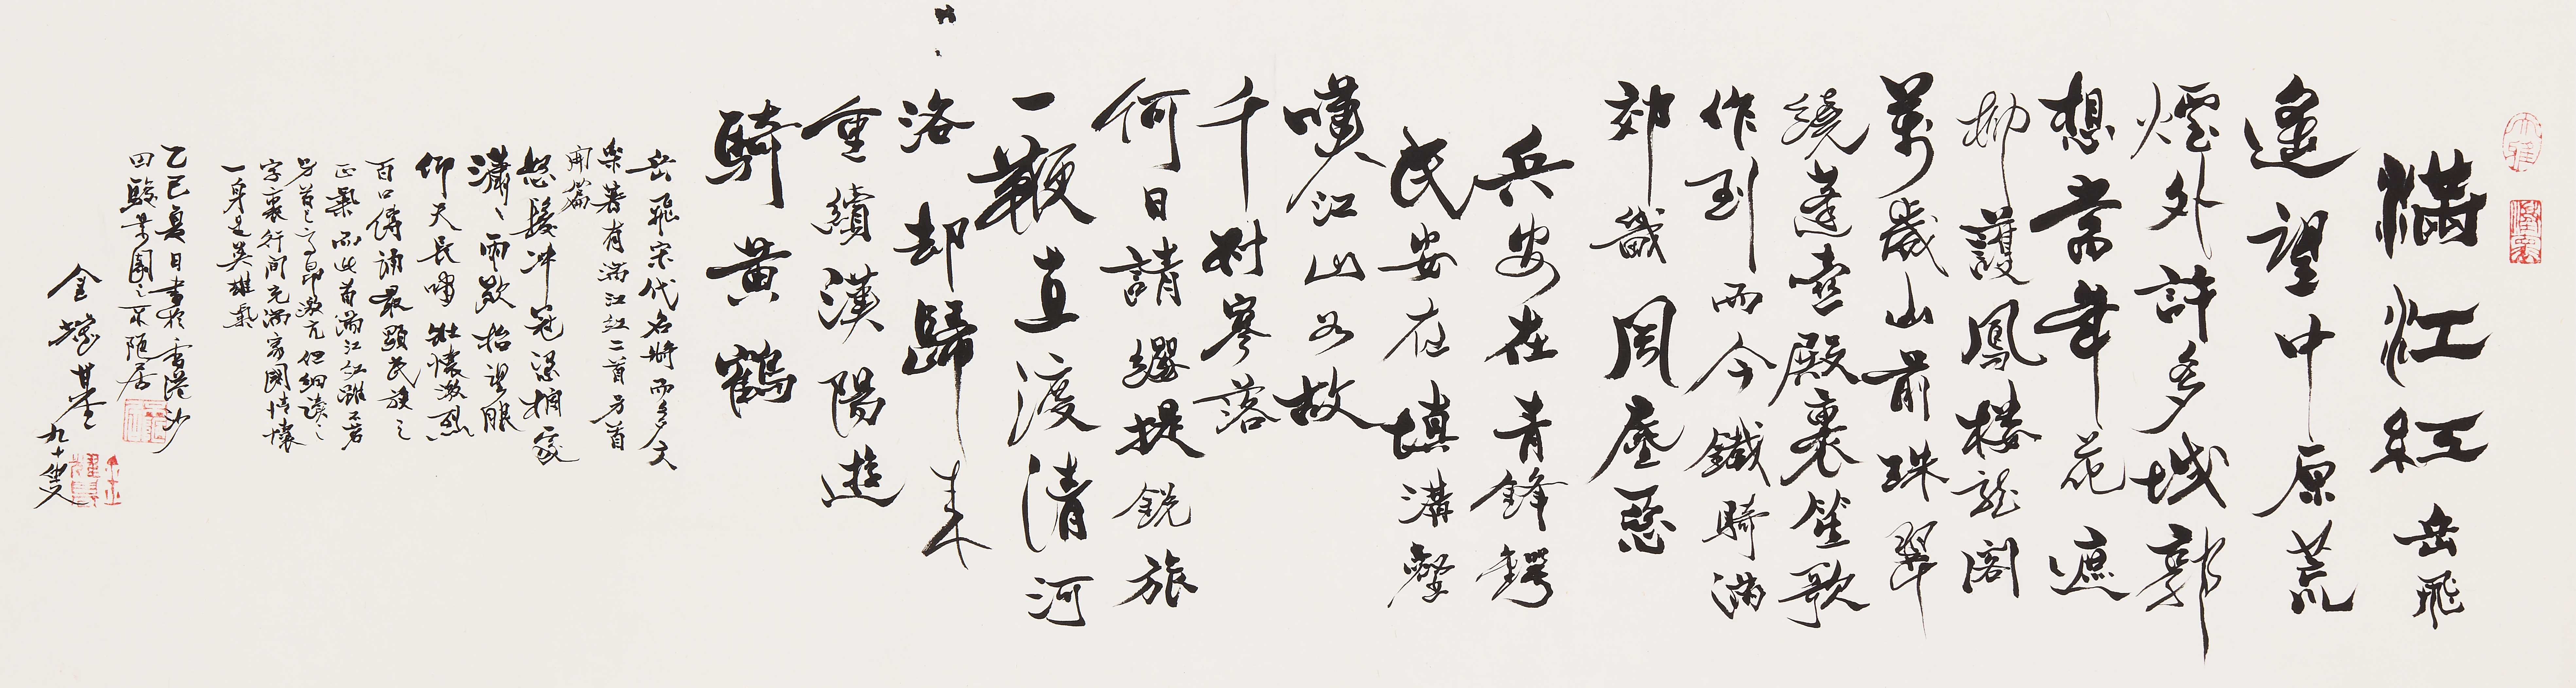 滿江紅 岳飛
遙望中原荒
煙外許多城郭
想當年花遮
柳護鳳楼龍閣
萬歲山前珠翠
繞蓬壺殿裏笙歌
作到而今鐵騎滿
郊畿風塵惡
兵安在青鋒鍔
民安在填溝壑
嘆江山如故
千村寥落
何日請纓提銳旅
一鞭直渡清河
洛却歸來
重續漢陽遊
騎黃鶴
岳飛宋代名將而多文
采著有滿江紅二首另首
開篇
怒髮冲冠憑欄處
瀟瀟雨歇抬望眼
仰天長嘯壯懷激烈
百口傳誦最顯民族之
正氣而此首滿江紅雖不若
另首之高昂激亢但細讀之
字裏行間充滿家國情懷
一身是英雄氣
乙巳夏日書於香港沙
田駿景園之不陋居
金耀基九十叟